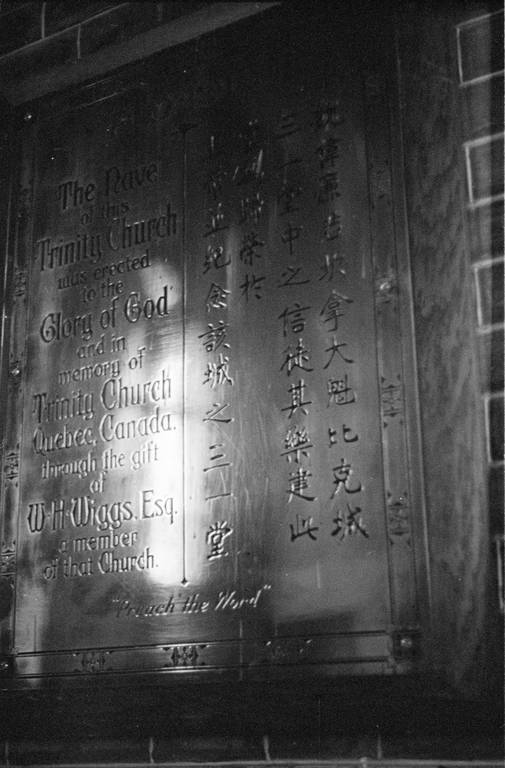 The Nave
of this
Trinity Church
was erected
to the
Glory of God
and in
memory of
Trinity Church
Quebec, Canada.
through the gift
of
W·H·Wiggs, Esq.
a member
of that Church.
偉廉 坎拿大魁比克城
三一堂中之信徒其樂建此
歸榮於
上帝並紀念該城之三一堂
"Preach the Word"